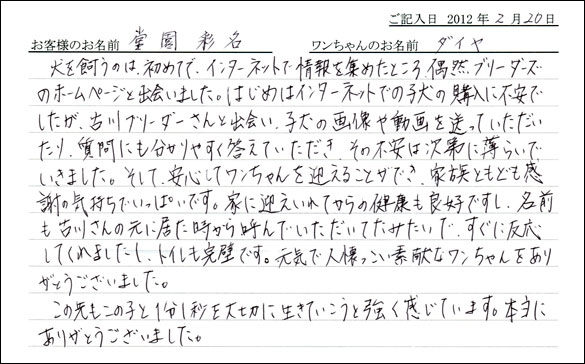 ご記入日 2012年2月20日
お客様のお名前 堂園 彩名 ワンちゃんのお名前 ダイヤ
犬を飼うのは、初めてで、インターネットで情報を集めたところ、偶然、ブリーダーズ
のホームページと出会いました。はじめはインターネットでの子犬の購入に不安で
したが、古川ブリーダーさんと出会い、子犬の画像や動画を送っていただい
たり、質問にも分かりやすく答えていただき、その不安は次第に薄らいで
いきました。そして、安心してワンちゃんを迎えることができ、家族ともども感
謝の気持ちでいっぱいです。家に迎えいれてからの健康も良好ですし、名前
も古川さんの元に居た時から呼んでいただいてたみたいで、すぐに反応
してくれましたし、トイレも完璧です。元気で人懐っこい素敵なワンちゃんをあり
がとうございました。
この先もこの子と1分1秒を大切に生きていこうと強く感じています。本当に
ありがとうございました。